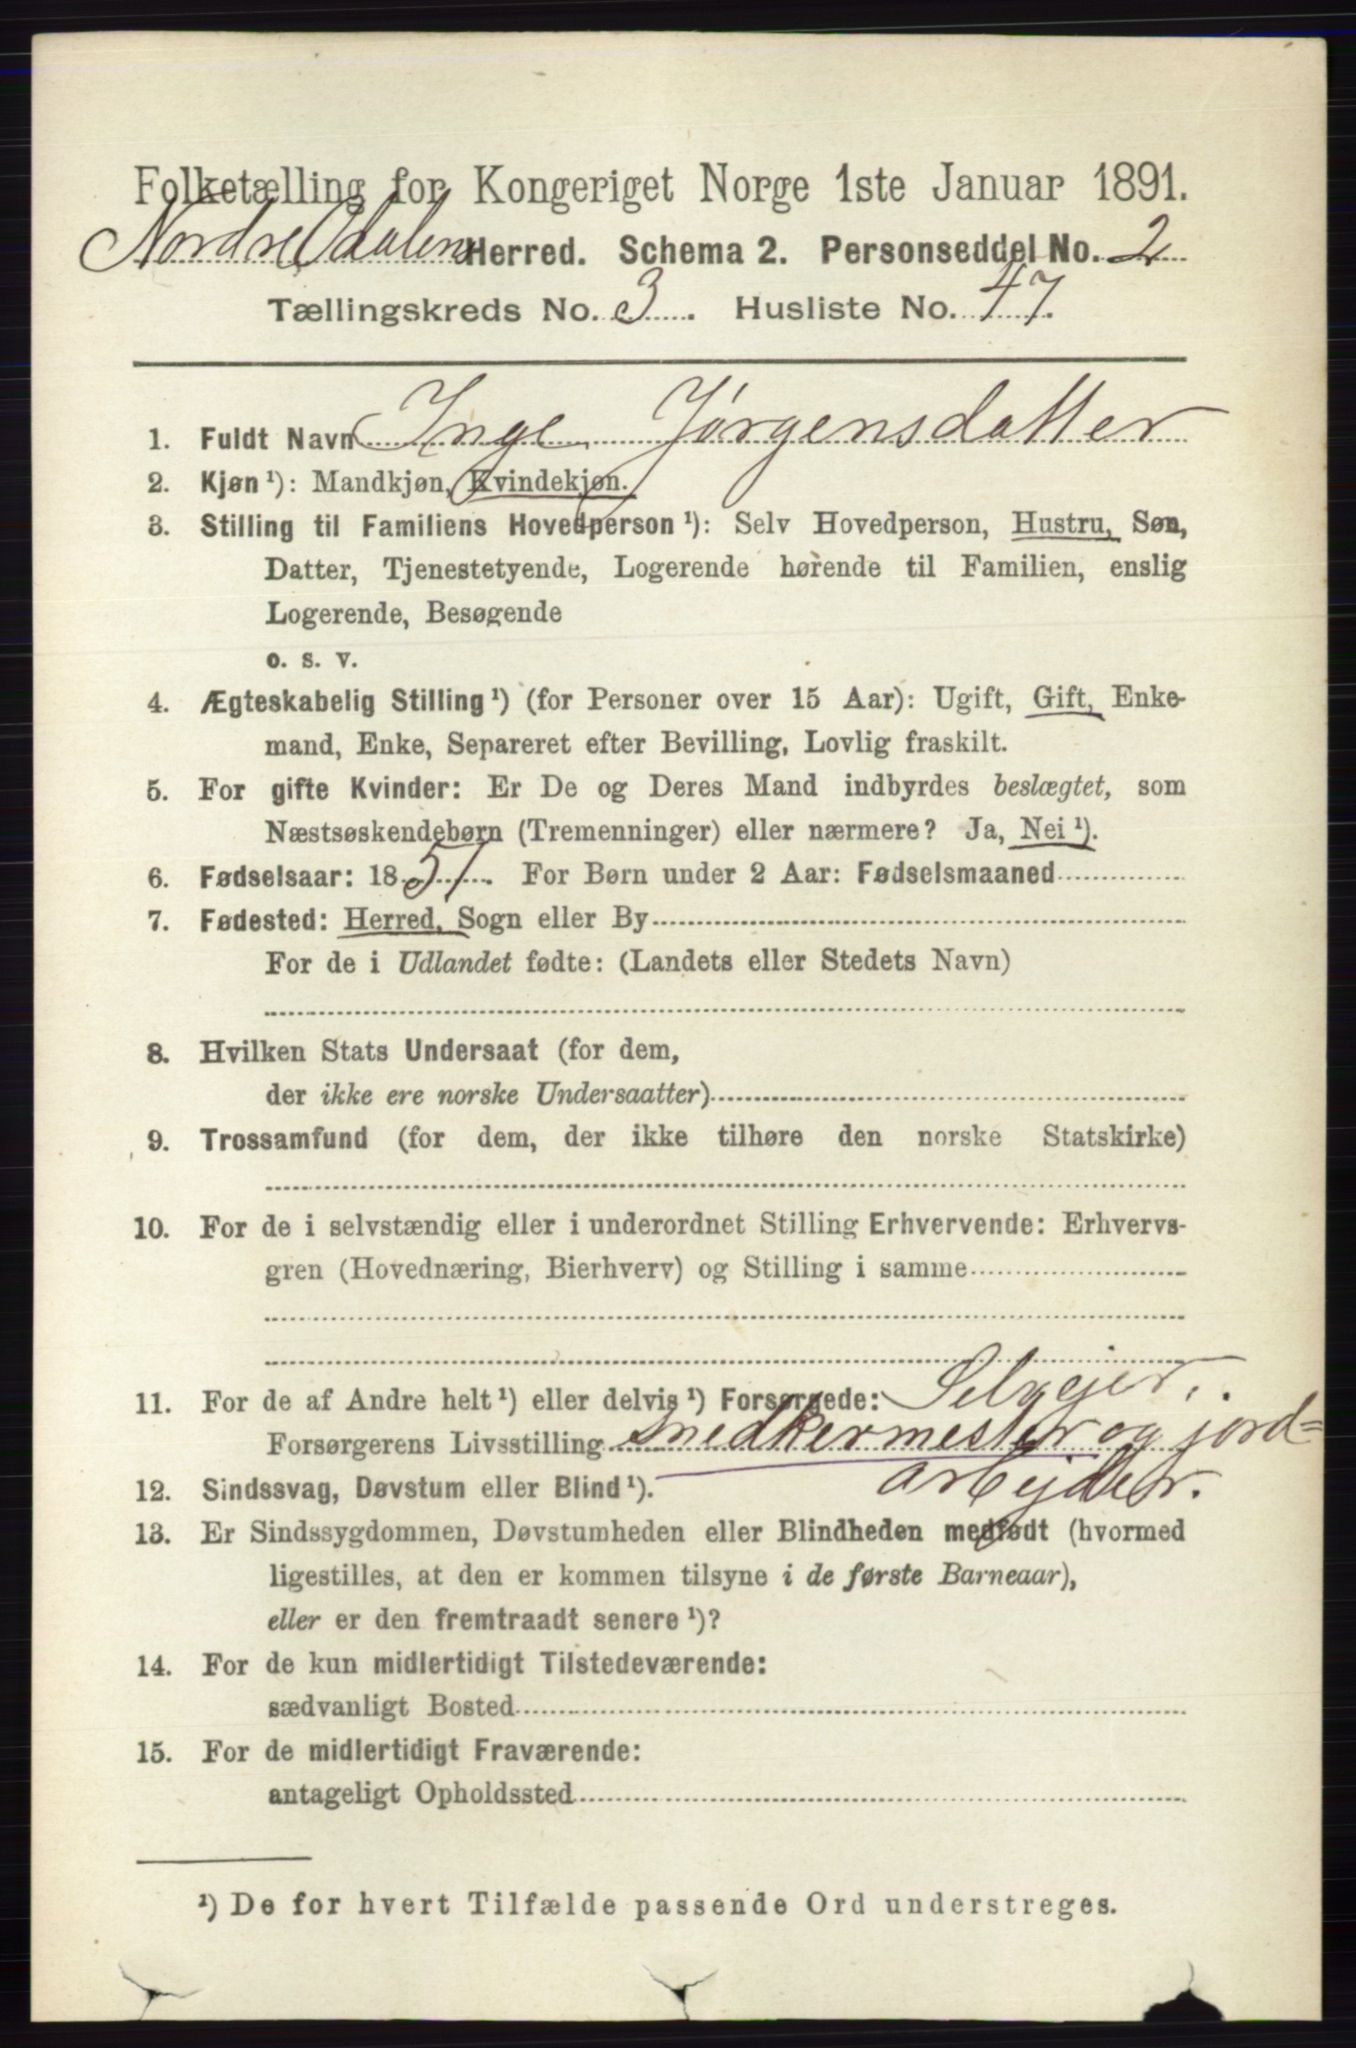 Folketælling for Kongeriget Norge 1ste Januar 1891.
Nordre Odalens Herred. Schema 2. Personseddel No. 2
Tællingskreds No. 3. Husliste No. 47.
1. Fuldt Navn Inge Jørgensdatter
2. Kjøn ¹): Mandkjøn, Kvindekjøn.
3. Stilling til Familiens Hovedperson ¹): Selv Hovedperson, Hustru, Søn,
Datter, Tjenestetyende, Logerende hørende til Familien, enslig
Logerende, Besøgende
o. s. v.
4. Ægteskabelig Stilling ¹) (for Personer over 15 Aar): Ugift, Gift, Enke-
mand, Enke, Separeret efter Bevilling, Lovlig fraskilt.
5. For gifte Kvinder: Er De og Deres Mand indbyrdes beslægtet, som
Næstsøskendebørn (Tremenninger) eller nærmere? Ja, Nei ¹).
6. Fødselsaar: 1851. For Børn under 2 Aar: Fødselsmaaned
7. Fødested: Herred, Sogn eller By
For de i Udlandet fødte: (Landets eller Stedets Navn)
8. Hvilken Stats Undersaat (for dem,
der ikke ere norske Undersaatter)
9. Trossamfund (for dem, der ikke tilhøre den norske Statskirke)
10. For de i selvstændig eller i underordnet Stilling Erhvervende: Erhvervs-
gren (Hovednæring, Bierhverv) og Stilling i samme
11. For de af Andre helt ¹) eller delvis ¹) Forsørgede: Selvejer,
Forsørgerens Livsstilling snedkermester og jord=
arbejder.
12. Sindssvag, Døvstum eller Blind ¹).
13. Er Sindssygdommen, Døvstumheden eller Blindheden medfødt (hvormed
ligestilles, at den er kommen tilsyne i de første Barneaar),
eller er den fremtraadt senere ¹)?
14. For de kun midlertidigt Tilstedeværende:
sædvanligt Bosted
15. For de midlertidigt Fraværende:
antageligt Opholdssted
¹) De for hvert Tilfælde passende Ord understreges.